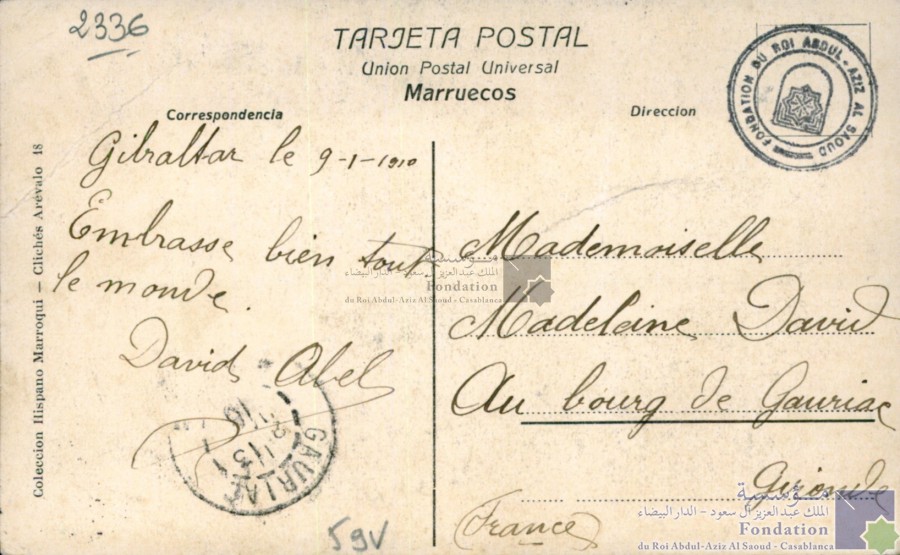 2336
TARJETA POSTAL
Union Postal Universal
Marruecos
Correspondencia
Direccion
FONDATION DU ROI ABDUL-AZIZ AL SAOUD
Gibraltar le 9-1-1910
Embrasse bien tout
le monde.
David Abel
Mademoiselle
Madeleine David
Au bourg de Gauriac
Gironde
France
GAURIAC
59V
Coleccion Hispano Marroqui – Clichés Arévalo 18
مؤسسة
الملك عبد العزيز آل سعود - الدار البيضاء
Fondation
du Roi Abdul-Aziz Al Saoud - Casablanca
مؤسسة
الملك عبد العزيز آل سعود - الدار البيضاء
Fondation
du Roi Abdul-Aziz Al Saoud - Casablanca